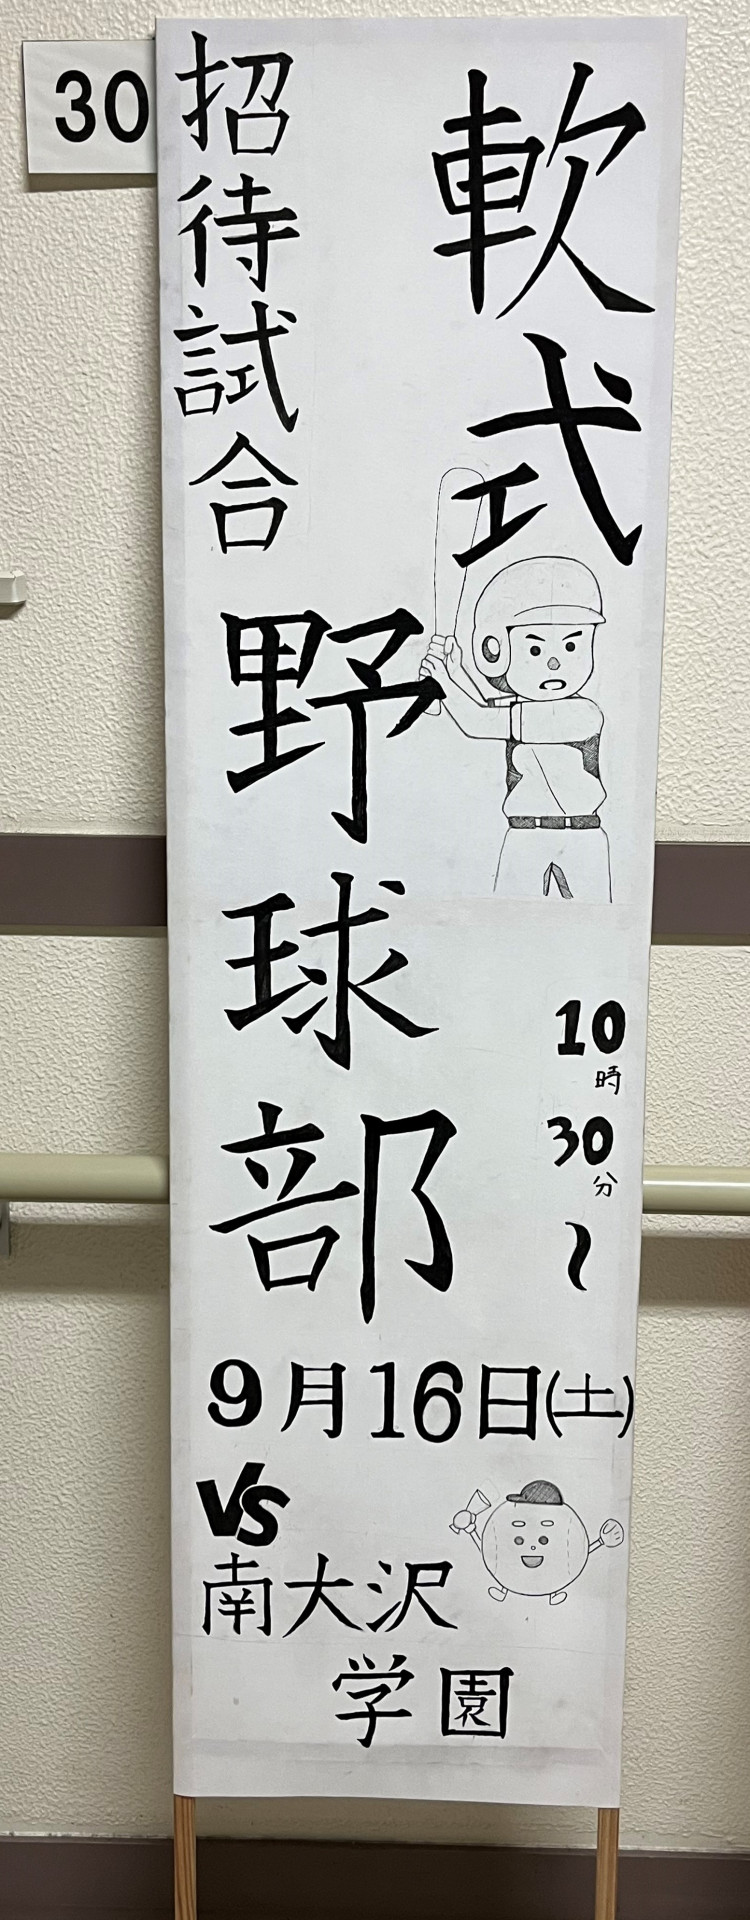 30
軟式
野球部
招待試合
10時30分~
9月16日(土)
VS
南大沢
学園